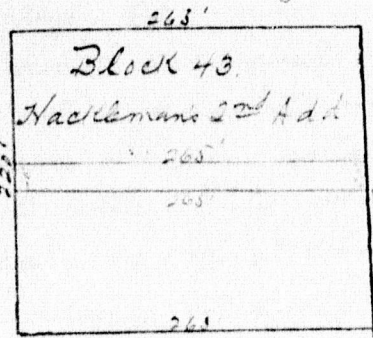 263'
Block 43.
Hackleman's 2nd Add
265'
265'
265